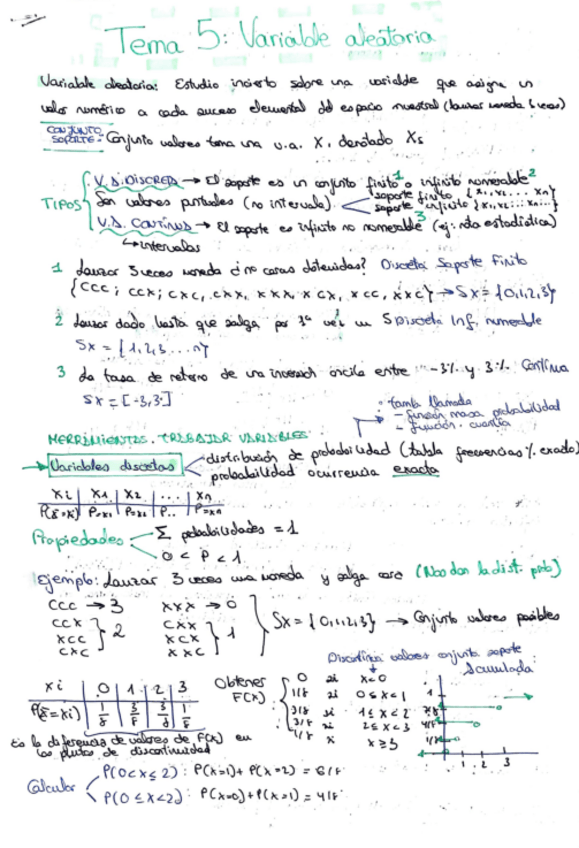 Tema 5: Variable aleatoria
Variable aleatoria: Estudio incierto sobre una variable que asigna un
valor numérico a cada suceso elemental del espacio muestral (lanzar moneda 3 veces)
CONJUNTO SOPORTE - Conjunto valores toma una v.a. X, denotado Xs
TIPOS
V.A. DISCRETA → El soporte es un conjunto finito¹ o infinito numerable²
Son valores puntuales (no intervalo)
soporte finito {x1, x2 ... xn}
soporte infinito {x1, x2: ... xn ...}
V.A. Continua → El soporte es infinito no numerable³ (ej: nota estadística)
↳ intervalos
1 Lanzar 3 veces moneda ¿nº caras obtenidas? Discreta Soporte Finito
{ccc; ccx; cxc, cxx, xxx, xcx, xcc, xxc} → Sx = {0,1,2,3}
2 Lanzar dado hasta que salga por 3ª vez un 5 Discreta Inf. numerable
Sx = {1,2,3 ... n}
3 La tasa de retorno de una inversión oscila entre -3% y 3%. Continua
Sx = [-3,3]
HERRAMIENTAS. TRABAJAR VARIABLES
tamb. llamada
- función masa probabilidad
- función cuantía
→ Variables discretas
distribución de probabilidad (tabla frecuencias % exacto)
probabilidad ocurrencia exacta
xi | x1 | x2 | ... | xn
P(X=x) | P=x1 | P=x2 | P.. | P=xn
Propiedades
Σ probabilidades = 1
0 < P < 1
Ejemplo: Lanzar 3 veces una moneda y salga cara (Nos dan la dist. prob)
ccc → 3 xxx → 0
ccx cxx
xcc } 2 xcx } 1 Sx = {0,1,2,3} → Conjunto valores posibles
cxc xxc
Discontinua valores conjunto soporte
Acumulada
xi | 0 | 1 | 2 | 3
P(X=xi) | 1/8 | 3/8 | 3/8 | 1/8
Obtener F(x)
0 si x<0
1/8 si 0≤x<1
1≤x<2
2≤x<3
x≥3
1
7/8
4/8
1 2 3
Es la diferencia de valores de F(x) en
los puntos de discontinuidad
Calcular
P(0<x≤2) : P(x=1) + P(x=2) = 6/8
P(0≤x<2) : P(x=0) + P(x=1) = 4/8